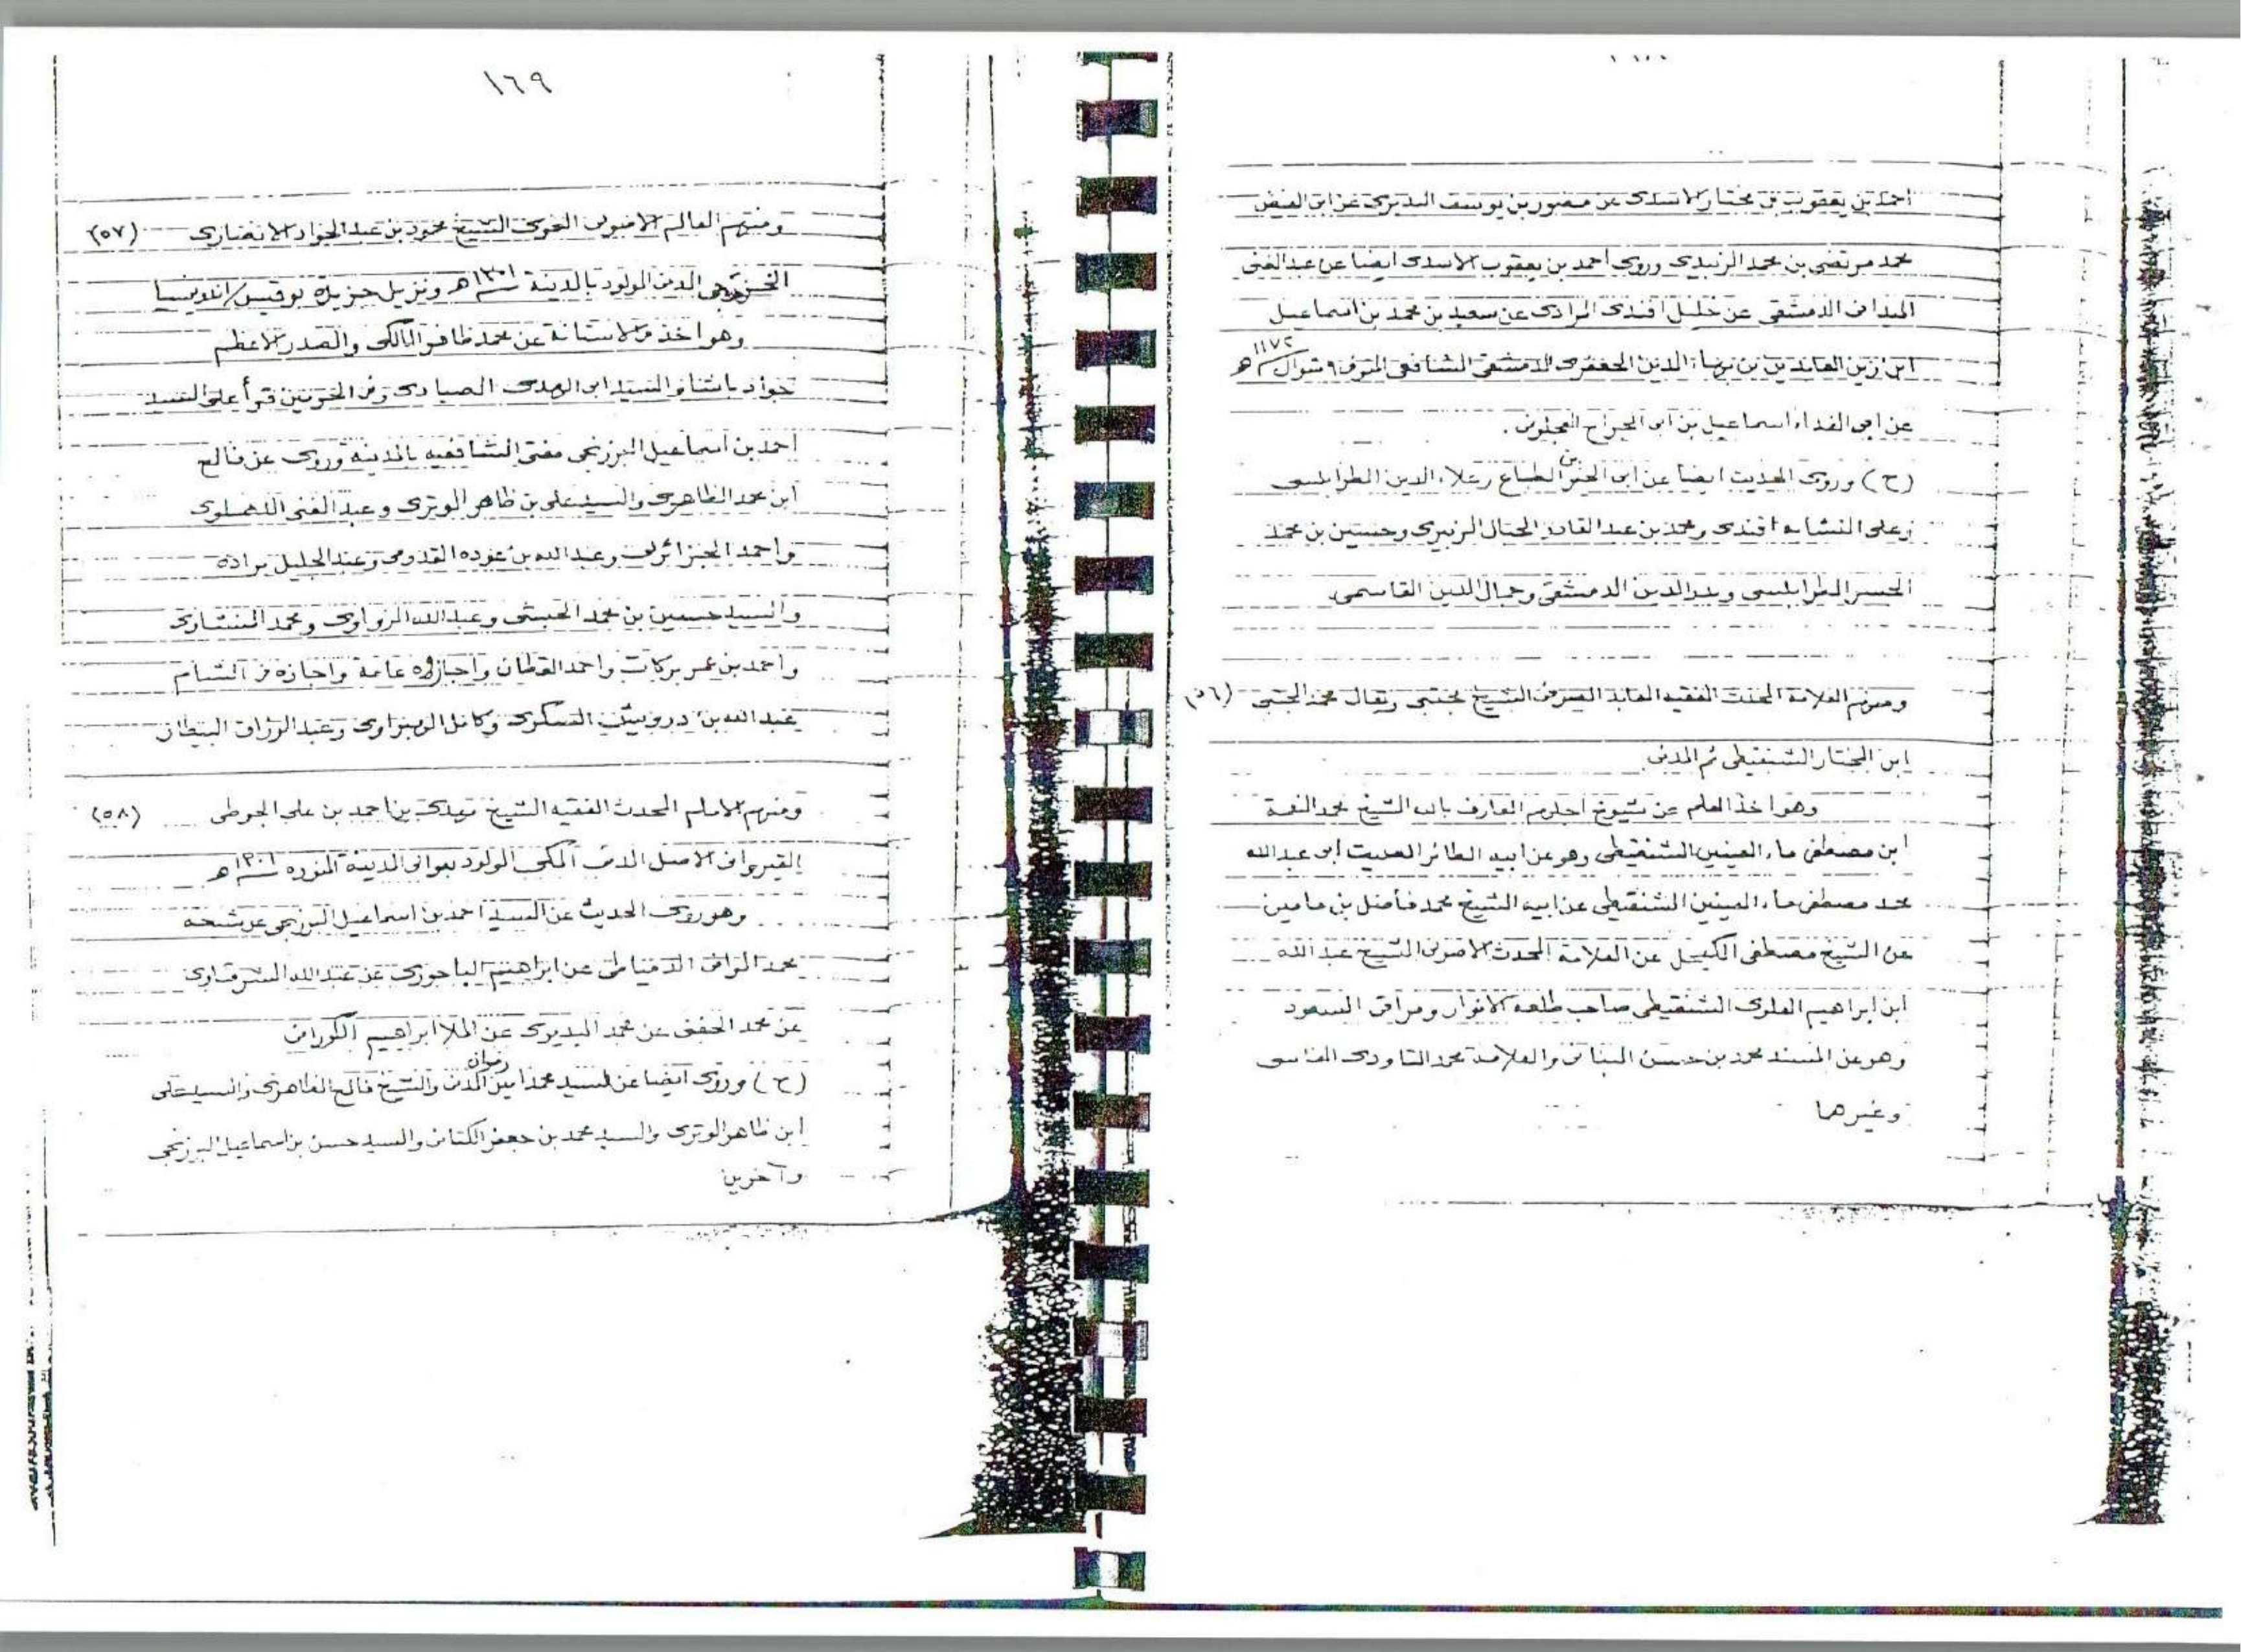 احمد بن يعقوب بن مختار الاسدى عن منصور بن يوسف البديرى عن ابى الفيض
محمد مرتضى بن محمد الزبيدى وروى احمد بن يعقوب الاسدى ايضا عن عبد الغنى
الميدانى الدمشقى عن خليل افندى المرادى عن سعيد بن محمد بن اسماعيل
ابن زين العابدين بن بهاء الدين الجعفرى الدمشقى الشافعى المتوفى ٩ شوال ١١٧٢ هـ
عن ابى الفداء اسماعيل بن ابى الجراح العجلونى .
(ح) وروى الحديث ايضا عن ابى الخير بن الطباع وعلاء الدين الطرابلسى
وعلى النشابه افندى ومحمد بن عبد القادر الحبال الزبيرى وحسين بن محمد
الجسر الطرابلسى وبدر الدين الدمشقى وجمال الدين القاسمى
ومنهم العلامة المحدث الفقيه العابد الصوفى الشيخ مجتبى ويقال محمد المجتبى (٥٦)
ابن المختار الشنقيطى ثم المدنى
وهو اخذ العلم عن شيوخ اجلهم العارف بالله الشيخ محمد النعمة
ابن مصطفى ماء العينين الشنقيطى وهو عن ابيه الطائر الصيت ابى عبد الله
محمد مصطفى ماء العينين الشنقيطى عن ابيه الشيخ محمد فاضل بن مامين
عن الشيخ مصطفى الكيحل عن العلامة المحدث الاصولى الشيخ عبد الله
ابن ابراهيم العلوى الشنقيطى صاحب طلعه الانوار ومراقى السعود
وهو عن المسند محمد بن حسن البنانى والعلامة محمد التاودى الفاسى
وغيرهما
١٦٩
ومنهم العالم الاصولى النحوى الشيخ محمود بن عبد الجواد الانصارى (٥٧)
الخزرجى المدنى المولود بالمدينة ١٣٠١ هـ ونزيل جزيرة
وهو اخذ فى الاستانة عن محمد ظافر المالكى والصدر الاعظم
جواد باشا والسيد ابى الهدى الصيادى وفى الحرمين قرأ على السيد
احمد بن اسماعيل البرزنجى مفتى الشافعيه بالمدينه وروى عن فالح
ابن محمد الظاهرى والسيد على بن ظاهر الوترى وعبد الغنى الدهلوى
واحمد الجزائرلى وعبد الله بن عوده القدومى وعبد الجليل براده
والسيد حسين بن محمد الحبشى وعبد الله الزواوى ومحمد المنشاوى
واحمد بن عمر بركات واحمد القطان واجازوه عامة واجازه فى الشام
عبد الله بن درويش السكرى وكامل الهبراوى وعبد الرزاق البيطار
ومنهم الامام المحدث الفقيه الشيخ مهدى بن احمد بن على الجوطى (٥٨)
القيروانى الاصل المدنى المكى المولود بعوالى المدينة المنوره ١٣٠١ هـ
وهو روى الحديث عن السيد احمد بن اسماعيل البرزنجى عن شيخه
محمد الوافى الدمياطى عن ابراهيم الباجورى عن عبد الله الشرقاوى
عن محمد الحفنى عن محمد البديرى عن الملا ابراهيم الكورانى
(ح) وروى ايضا عن السيد محمد امين رضوان المدنى والشيخ فالح الظاهرى والسيد على
ابن ظاهر الوترى والسيد محمد بن جعفر الكتانى والسيد حسن بن اسماعيل البرزنجى
وآخرين